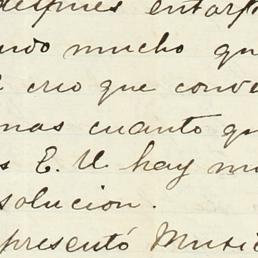 despues entorp
ndo mucho qu
crio que conv
mas cuanto qu
s E. U hay mu
solucion.
presentó Music